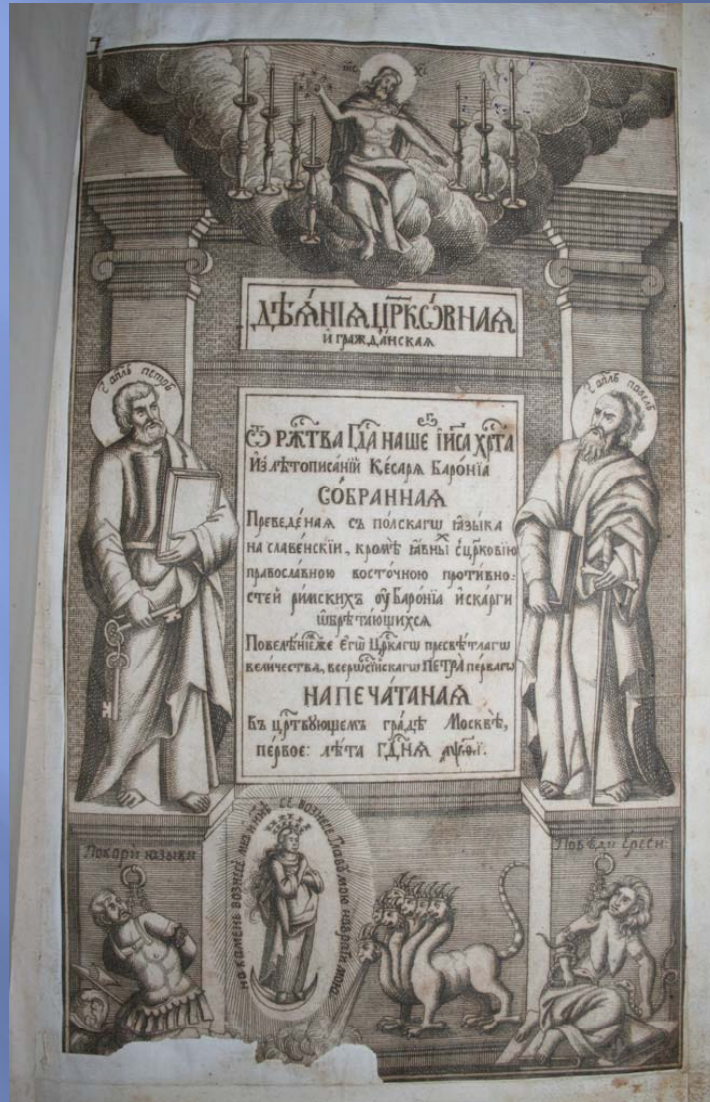 І҃ИС Х҃С
ДѢѦ́НІѦ ЦР҃КО́ВНАѦ
и҆ гражда́нскаѧ
с҃ апл҃ъ петръ
с҃ апл҃ъ павелъ
Ѿ РЖ҃ТВА ГД҃А НАШЕГ҃Ѡ І҆И҃СА ХР҃ТА
И҆з̾ лѣтописа́нїй Ке́сарѧ Баро́нїа
СО́БРАННАѦ
Преведе́наѧ съ по́лскагѡ ꙗ҆зы́ка
на славе́нскїи, кромѣ̀ ꙗ҆вны́х с̾ цр҃ковїю
правосла́вною восто́чною проти́вно:
сте́й ри́мскихъ ᲂу҆ Баро́нїа и҆ ска́рги
ѡ҆брѣта́ющихсѧ
Повелѣ́нїемже Є҆гѡ̀ Цр҃кагѡ пресвѣ́тлагѡ
вели́чества, всерѡссі́йскагѡ ПЕТРА̀ пе́рвагѡ
НАПЕЧА́ТАНАѦ
Въ цр҃твꙋющемъ гра́дѣ Москвѣ̀,
пе́рвое: лѣ́та ГД҃НѦ ҂аѱ҃ѳі.
Покори ꙗзыки
на камень вознесе мѧ и нн҃ѣ се вознесе главꙋ мою на враги моѧ
Побѣди ереси